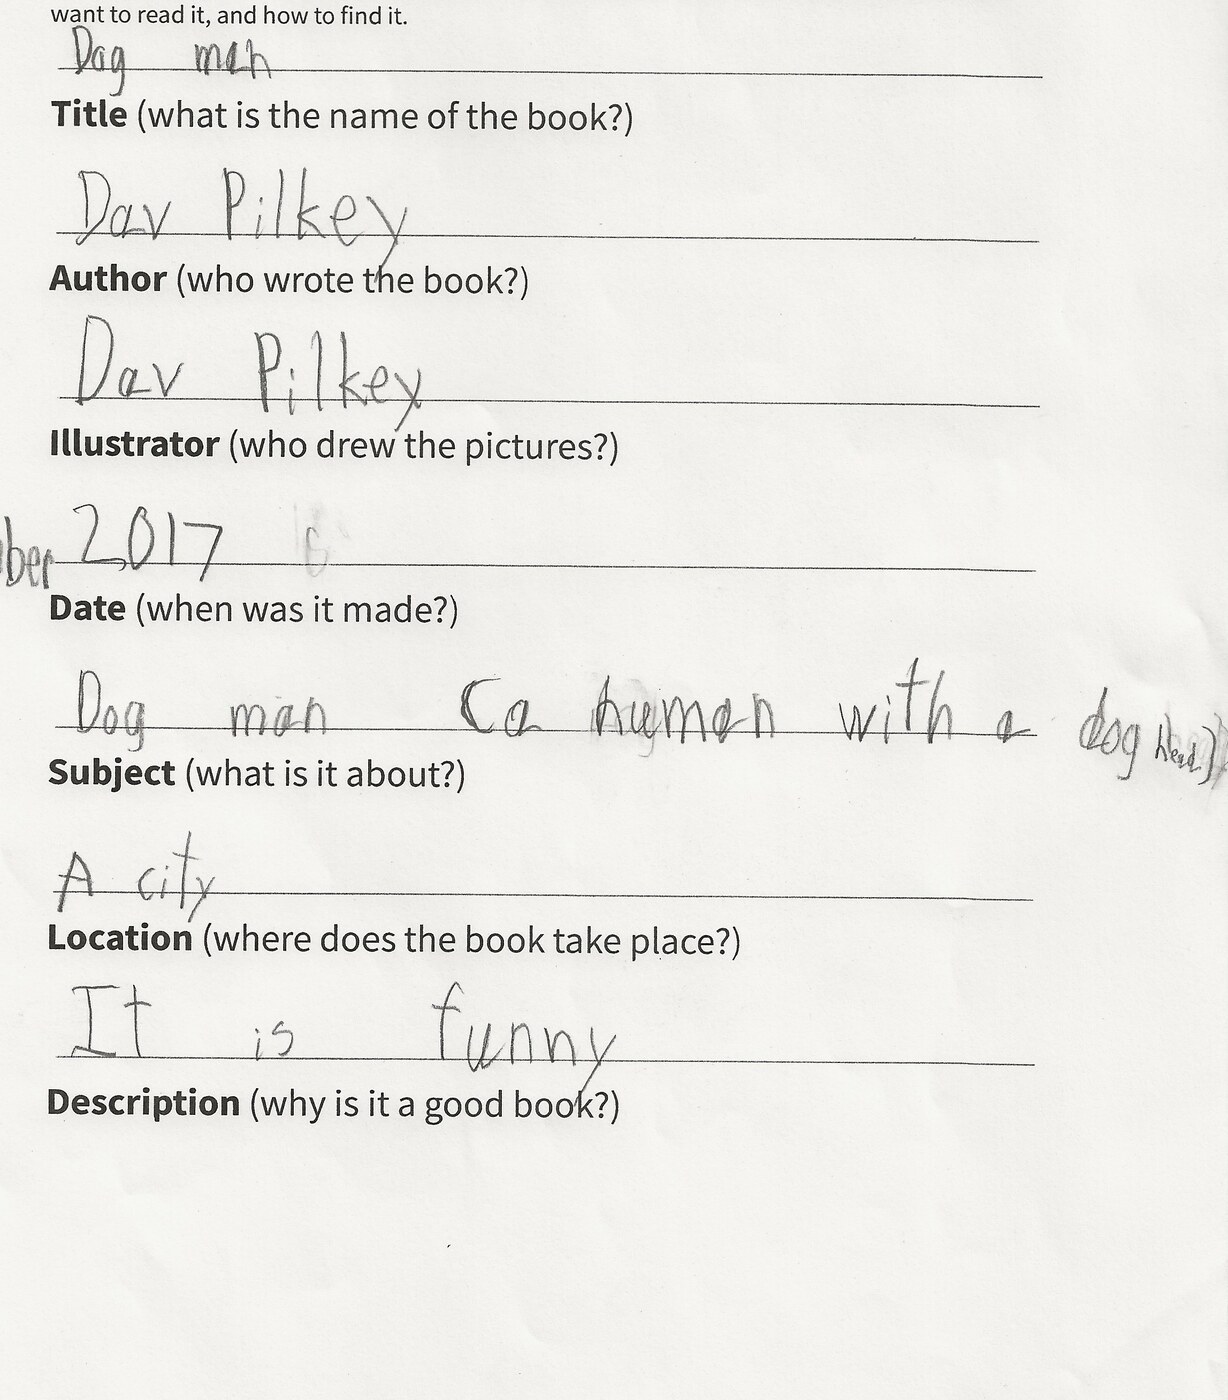 want to read it, and how to find it.
Dog man
Title (what is the name of the book?)
Dav Pilkey
Author (who wrote the book?)
Dav Pilkey
Illustrator (who drew the pictures?)
ber 2017 6
Date (when was it made?)
Dog man (a human with a dog head)
Subject (what is it about?)
A city
Location (where does the book take place?)
It is funny
Description (why is it a good book?)